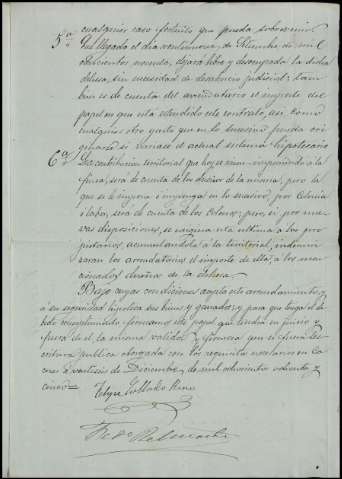 cualquier caso fortuito que pueda sobrevenir
5ª Que llegado el dia veintinueve de Setiembre de mil
ochocientos noventa, dejará libre y desocupada la dicha
dehesa, sin necesidad de desahucio judicial; tam
bien es de cuenta del arrendatario el importe del
papel en que va estendido este contrato, asi como
cualquier otro gasto que en lo sucesivo pueda ori
ginarse si variase el actual sistema hipotecario
6ª La contribucion territorial que hoy se viene imponiendo a la
finca, será de cuenta de los dueños de la misma, pero la
que se le impone é imponga en lo sucesivo, por Colonia
ó labor, será de cuenta de los Colonos; pero, si por nue
vas disposiciones, se cargara esta ultima á los pro
pietarios, acumulandola á la territorial, indemni
zaran los arrendatarios el importe de ella, á los men
cionados dueños de la dehesa.
Bajo cuyas condiciones acepta este arrendamiento, y
á su seguridad hipoteca sus bienes y ganados; y para que tenga el de
bido cumplimiento firmamos este papel que tendrá en juicio y
fuera de él la misma validez y firmeza que si fuera Es
critura publica otorgada con los requisitos necesarios en Ca
ceres á veintiseis de Diciembre de mil ochocientos ochenta y
cinco=
Felipe